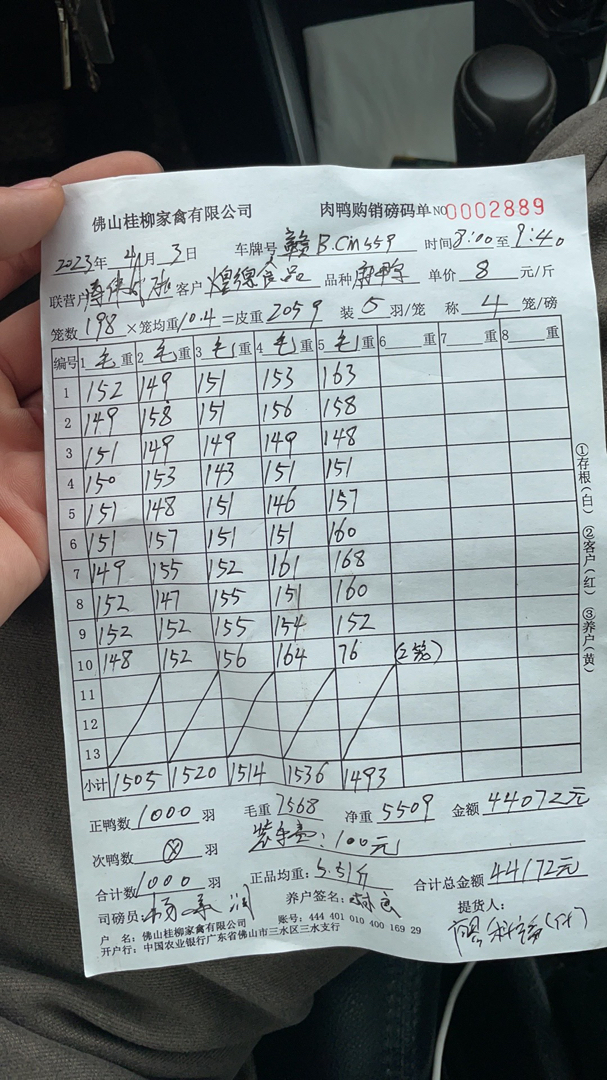 佛山桂柳家禽有限公司 肉鸭购销磅码单 NO 0002889
2023年 4月 3日 车牌号 赣B.CM559 时间 8:00至9:40
联营户 客户 煌 食品 品种 单价 8 元/斤
笼数 198 ×笼均重 10.4 =皮重 2059 装 5 羽/笼 称 4 笼/磅
编号 1 毛 重 2 毛 重 3 毛 重 4 毛 重 5 毛 重 6 重 7 重 8 重
1 152 149 151 153 163
2 149 158 151 156 158
3 151 149 149 149 148
4 150 153 143 151 151
5 151 148 151 146 157
6 151 157 151 151 160
7 149 155 152 161 168
8 152 147 155 151 160
9 152 152 155 154 152
10 148 152 156 164 76 (2笼)
11
12
13
小计 1505 1520 1514 1536 1493
正鸭数 1000 羽 毛重 7568 净重 5509 金额 44072元
次鸭数 ⊗ 羽 装车费:100元
合计数 1000 羽 正品均重: 5.51斤 合计总金额 44172元
司磅员: 杨 养户签名: 提货人:
户 名: 佛山桂柳家禽有限公司 账号: 444 401 010 400 169 29
开户行: 中国农业银行广东省佛山市三水区三水支行
①存根(白) ②客户(红) ③养户(黄)